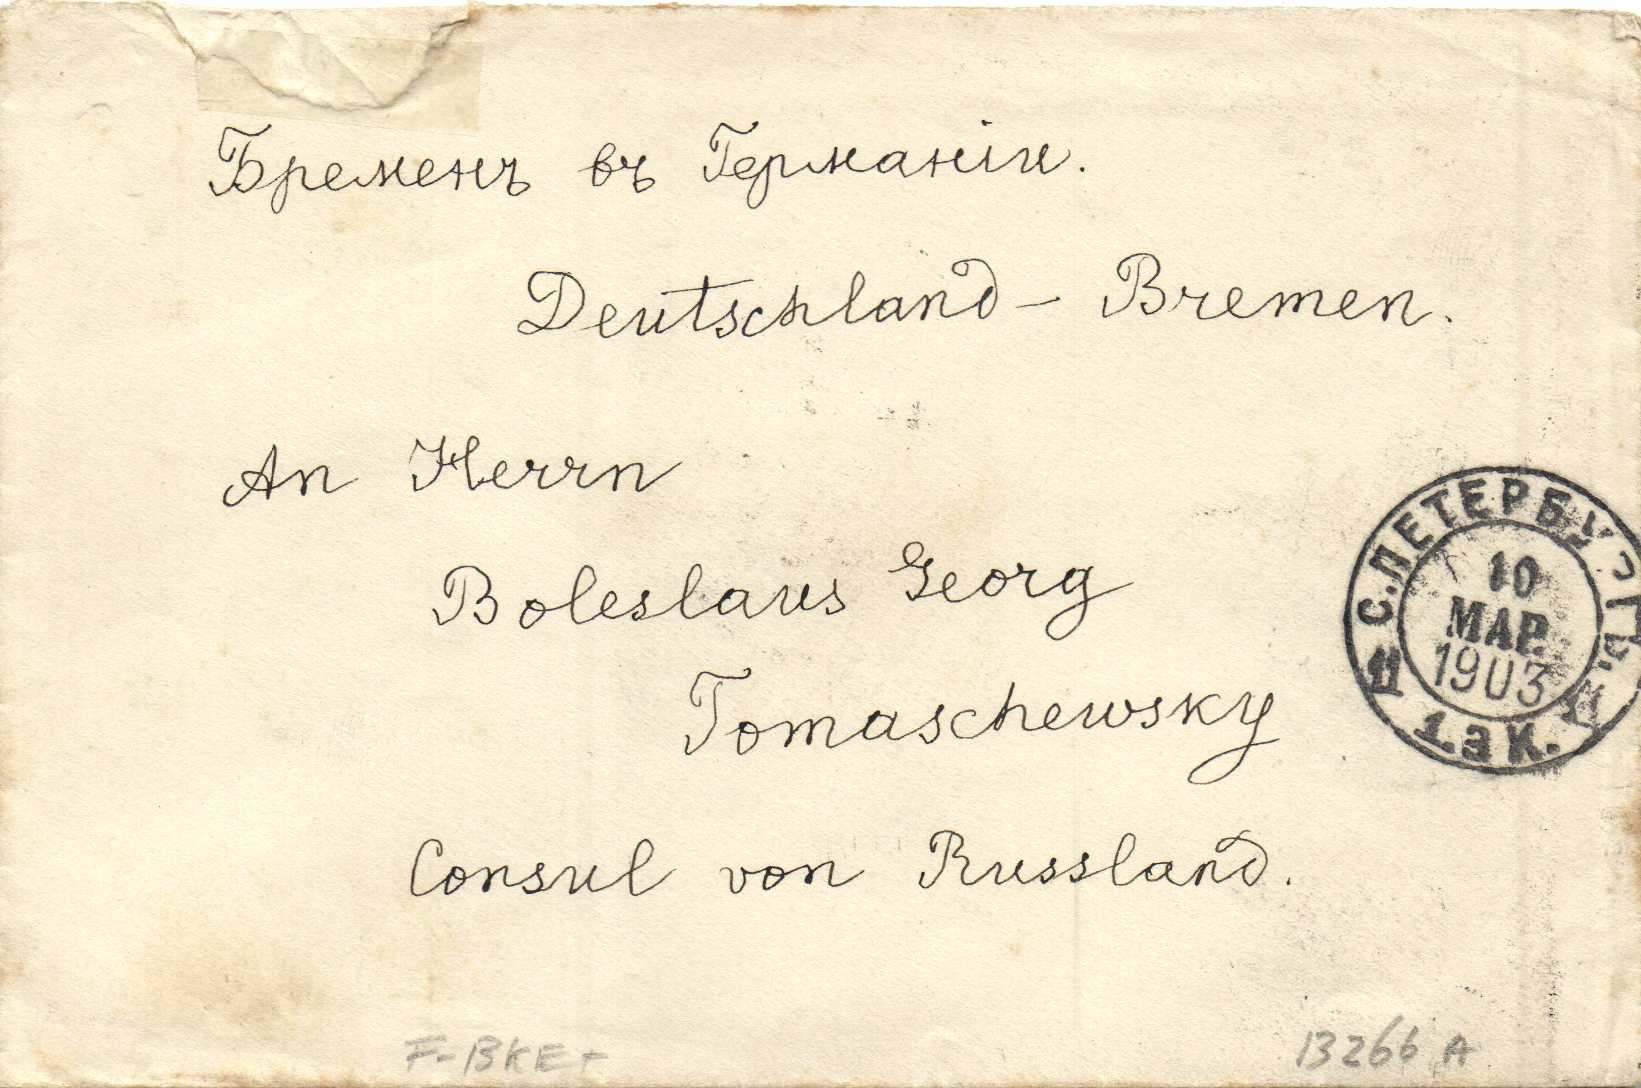 Бременъ въ Германіи.
Deutschland - Bremen.
An Herrn
Boleslaus Georg
Tomaschewsky
Consul von Russland.
С.ПЕТЕРБУРГЪ.
10
МАР.
1903
1.ЭК.
13266 A